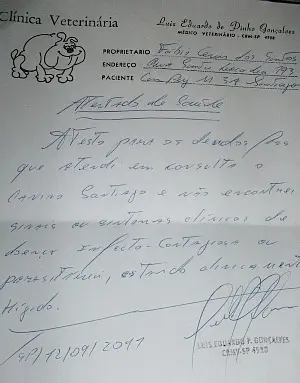 Clínica Veterinária
Luis Eduardo de Pinho Gonçalves
MÉDICO VETERINÁRIO - CRMV-SP 4590
PROPRIETÁRIO Fábio Cesar dos Santos
ENDEREÇO
PACIENTE Santiago
Atestado de Saúde
Atesto para os devidos fins
que atendi em consulta o
Canino Santiago e não encontrei
sinais ou sintomas clínicos de
doença infecto-contagiosa ou
parasitária, estando clinicamente
Hígido.
SP/12/09/2011
LUIS EDUARDO P. GONÇALVES
CRMV-SP 4590